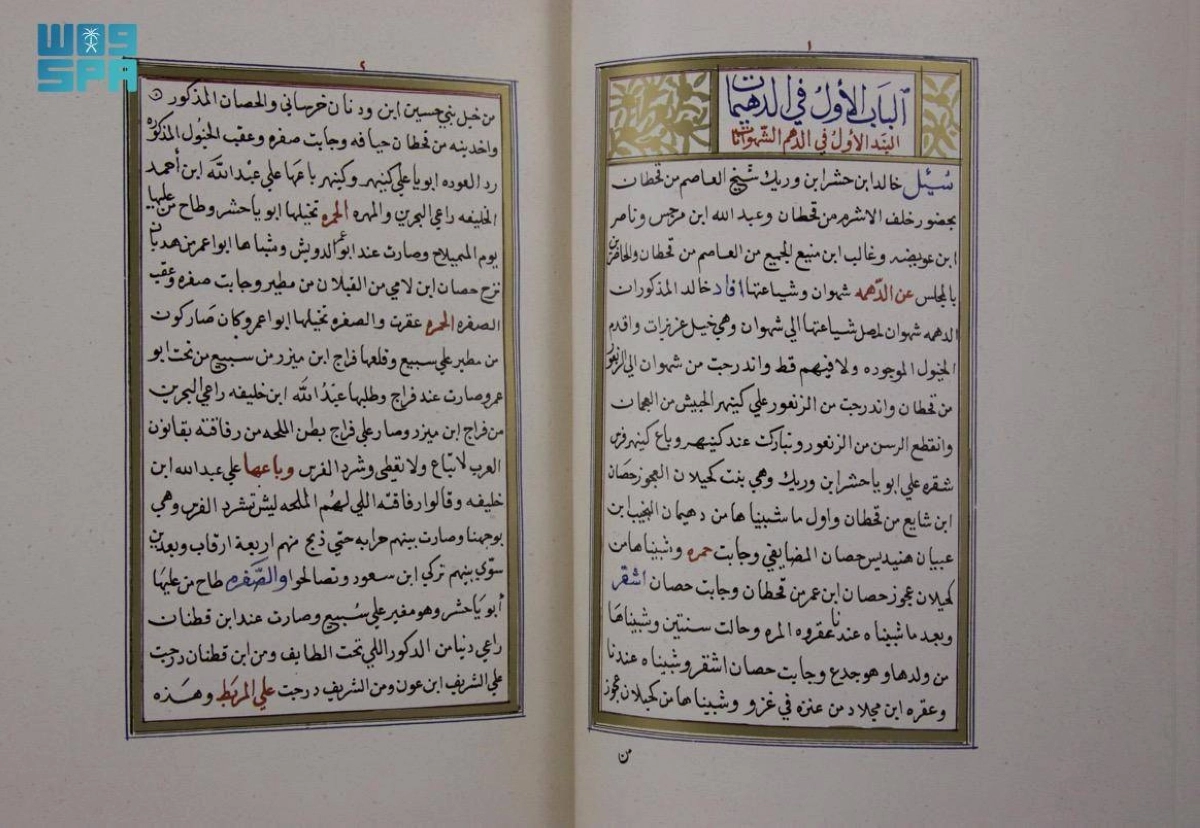 واس
SPA
١
الباب الأول في الدهيمات
البند الأول في الدهم الشهوانات
سئل خالد ابن حشر ابن وريك شيخ العاصم من قحطان
بحضور خلف الاشرم من قحطان وعبد الله ابن مرجس وناصر
ابن عويضه وغالب ابن منيع الجميع من العاصم من قحطان والحاضرين
بالمجلس عن الدهمه شهوان وشياعتها افاد خالد المذكورات
الدهمه شهوان اصل شياعتها الي شهوان وهي خيل عزيزات واقدم
الخيول الموجوده ولا فيهم قط واندرجت من شهوان الي الزنغور
من قحطان واندرجت من الزنغور علي كنيهر الجبيش من العجمان
وانقطع الرسن من الزنغور وتباركت عند كنيهر وباع كنيهر فرس
شقره علي ابو يا حشر ابن وريك وهي بنت كحيلان العجوز حصان
ابن شايع من قحطان واول ما شبيناها من دهيمان النجيب ابن
عبيان هنيديس حصان المضايفي وجابت حمره وشبيناها من
كحيلان عجوز حصان ابن عمر من قحطان وجابت حصان اشقر
وبعد ما شبيناه عندنا عقروه المره وحالت سنتين وشبيناها
من ولدها وهو جدع وجابت حصان اشقر وشبيناه عندنا
وعقره ابن مجلاد من عنزه في غزو وشبيناها من كحيلان عجوز
من
٢
من خيل بني حسين ابن ودنان خرساني والحصان المذكور
واخدينه من قحطان حيافه وجابت صفره وعقب الخيول المذكوره
رد العوده ابويا علي كنيهر وكنيهر باعها علي عبد الله ابن أحمد
الخليفه راعي البحرين والمهره الحمره تخيلها ابو يا حشر وطاح من عليها
يوم المبيلاح وصارت عند ابو عمر الدويش وشباها ابو اعمر من هدبان
نزح حصان ابن لامي من القبلان من مطير وجابت صفره وعقب
الصفره الحمره عقرت والصفره تخيلها ابو اعمر وكان صار كون
من مطير علي سبيع وقلعها فراج ابن ميزر من سبيع من تحت ابو
عمر وصارت عند فراج وطلبها عبد الله ابن خليفه راعي البحرين
من فراج ابن ميزر وصار علي فراج بطن الملحه من رفاقته بقانون
العرب لا تباع ولا تقطي وشرد الفرس وباعها علي عبد الله ابن
خليفه وقالوا رفاقته اللي لهم الملحه ليش تشرد الفرس وهي
بوجهنا وصارت بينهم حرابه حتي ذبح منهم اربعة ارقاب وبعدين
سوي بينهم تركي ابن سعود وتصالحوا والصفره طاح من عليها
أبو يا حشر وهو مغير علي سبيع وصارت عند ابن قطنان
راعي دنيا من الدكور اللي تحت الطايف ومن ابن قطنان درجت
علي الشريف ابن عون ومن الشريف درجت علي المربط وهذه